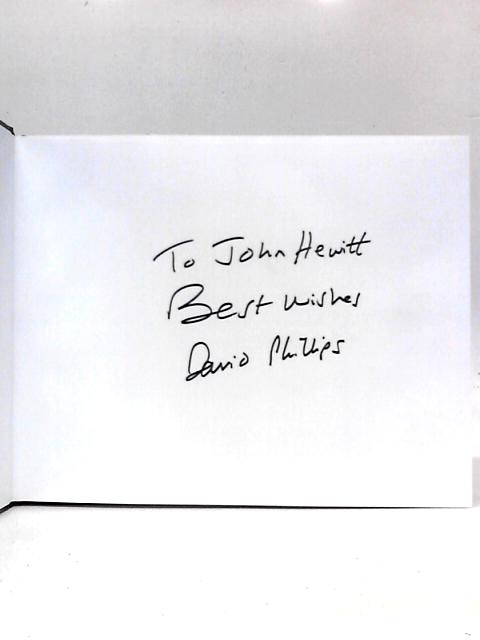 To John Hewitt
Best wishes
David Phillips